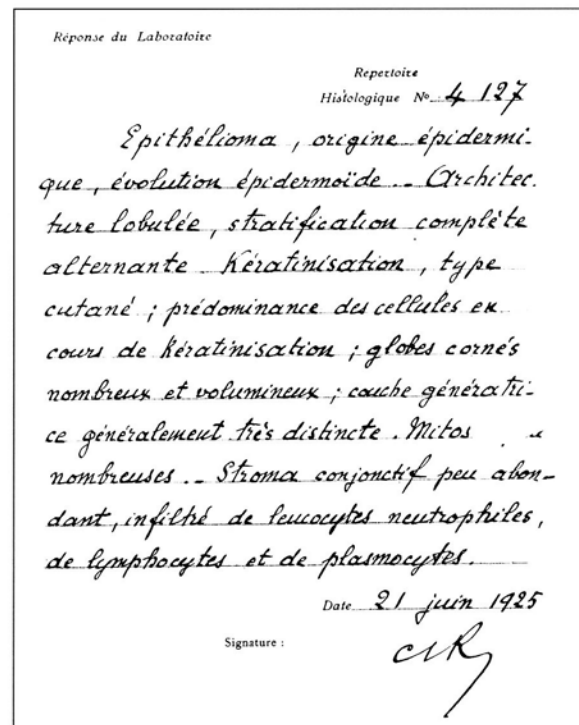 Réponse du Laboratoire
Repertoire
Histologique Nº 4 127
Epithélioma, origine épidermi-
que, évolution épidermoïde _ Architec.
ture lobulée, stratification complète
alternante Kératinisation, type
cutané ; prédominance des cellules en
cours de Kératinisation ; globes cornés
nombreux et volumineux ; couche génératri-
ce généralement très distincte. Mitos
nombreuses _ Stroma conjonctif peu abon-
dant, infiltré de leucocytes neutrophiles,
de lymphocytes et de plasmocytes.
Date 21 juin 1925
Signature :